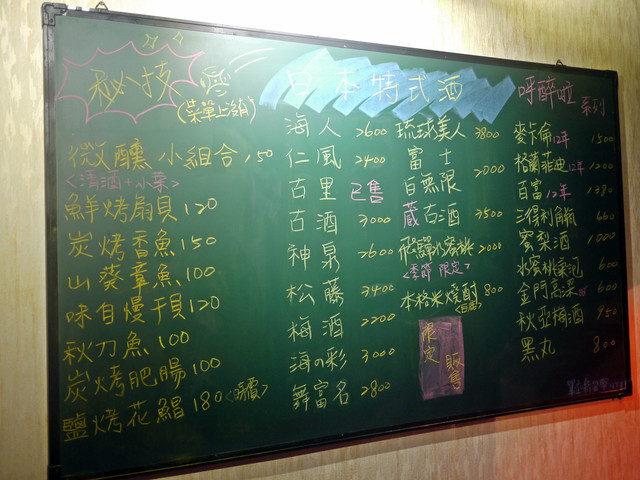 秘技
(菜單上沒有)
微醺小組合 150
<清酒+小菜>
鮮烤扇貝 120
炭烤香魚 150
山葵章魚 100
味自慢干貝 120
秋刀魚 100
炭烤肥腸 100
鹽烤花鯧 180
日本特式酒
海人 2600
仁風 2400
百里 已售
古酒 3000
神泉 2600
松藤 2400
梅酒 2200
海の彩 3000
舞富名 2800
琉球美人 3800
富士
白無限 2000
蔵古酒 3500
水蜜桃 2000
<季節限定>
本格米燒酎 800
限定
販售
呼醉啦系列
麥卡倫12年 1500
格蘭菲迪12年 1200
百富12年 1380
三得利角瓶 660
蜜梨酒 1000
水蜜桃 600
金門高粱 600
秋亞梅酒 950
黑丸 800